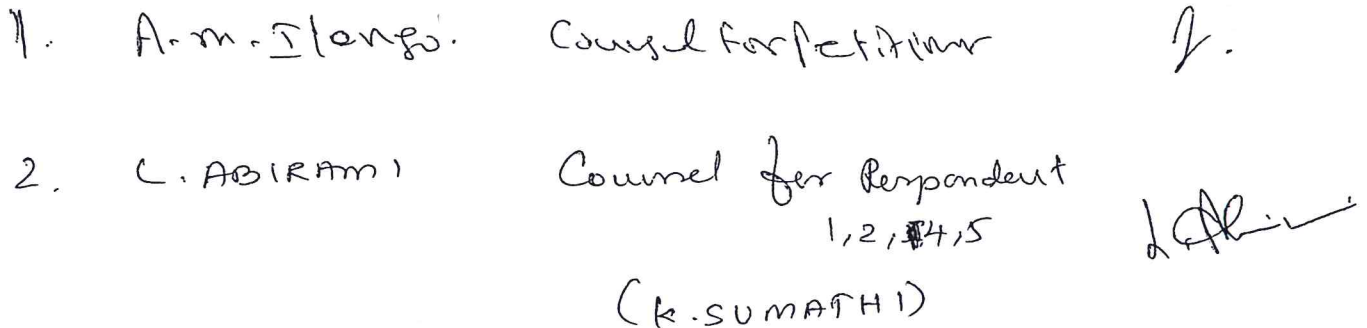 1. A.m. Ilango. Counsel for Petitioner
2. C. ABIRAMI Counsel for Respondent
1,2,4,5
(K.SUMATHI)